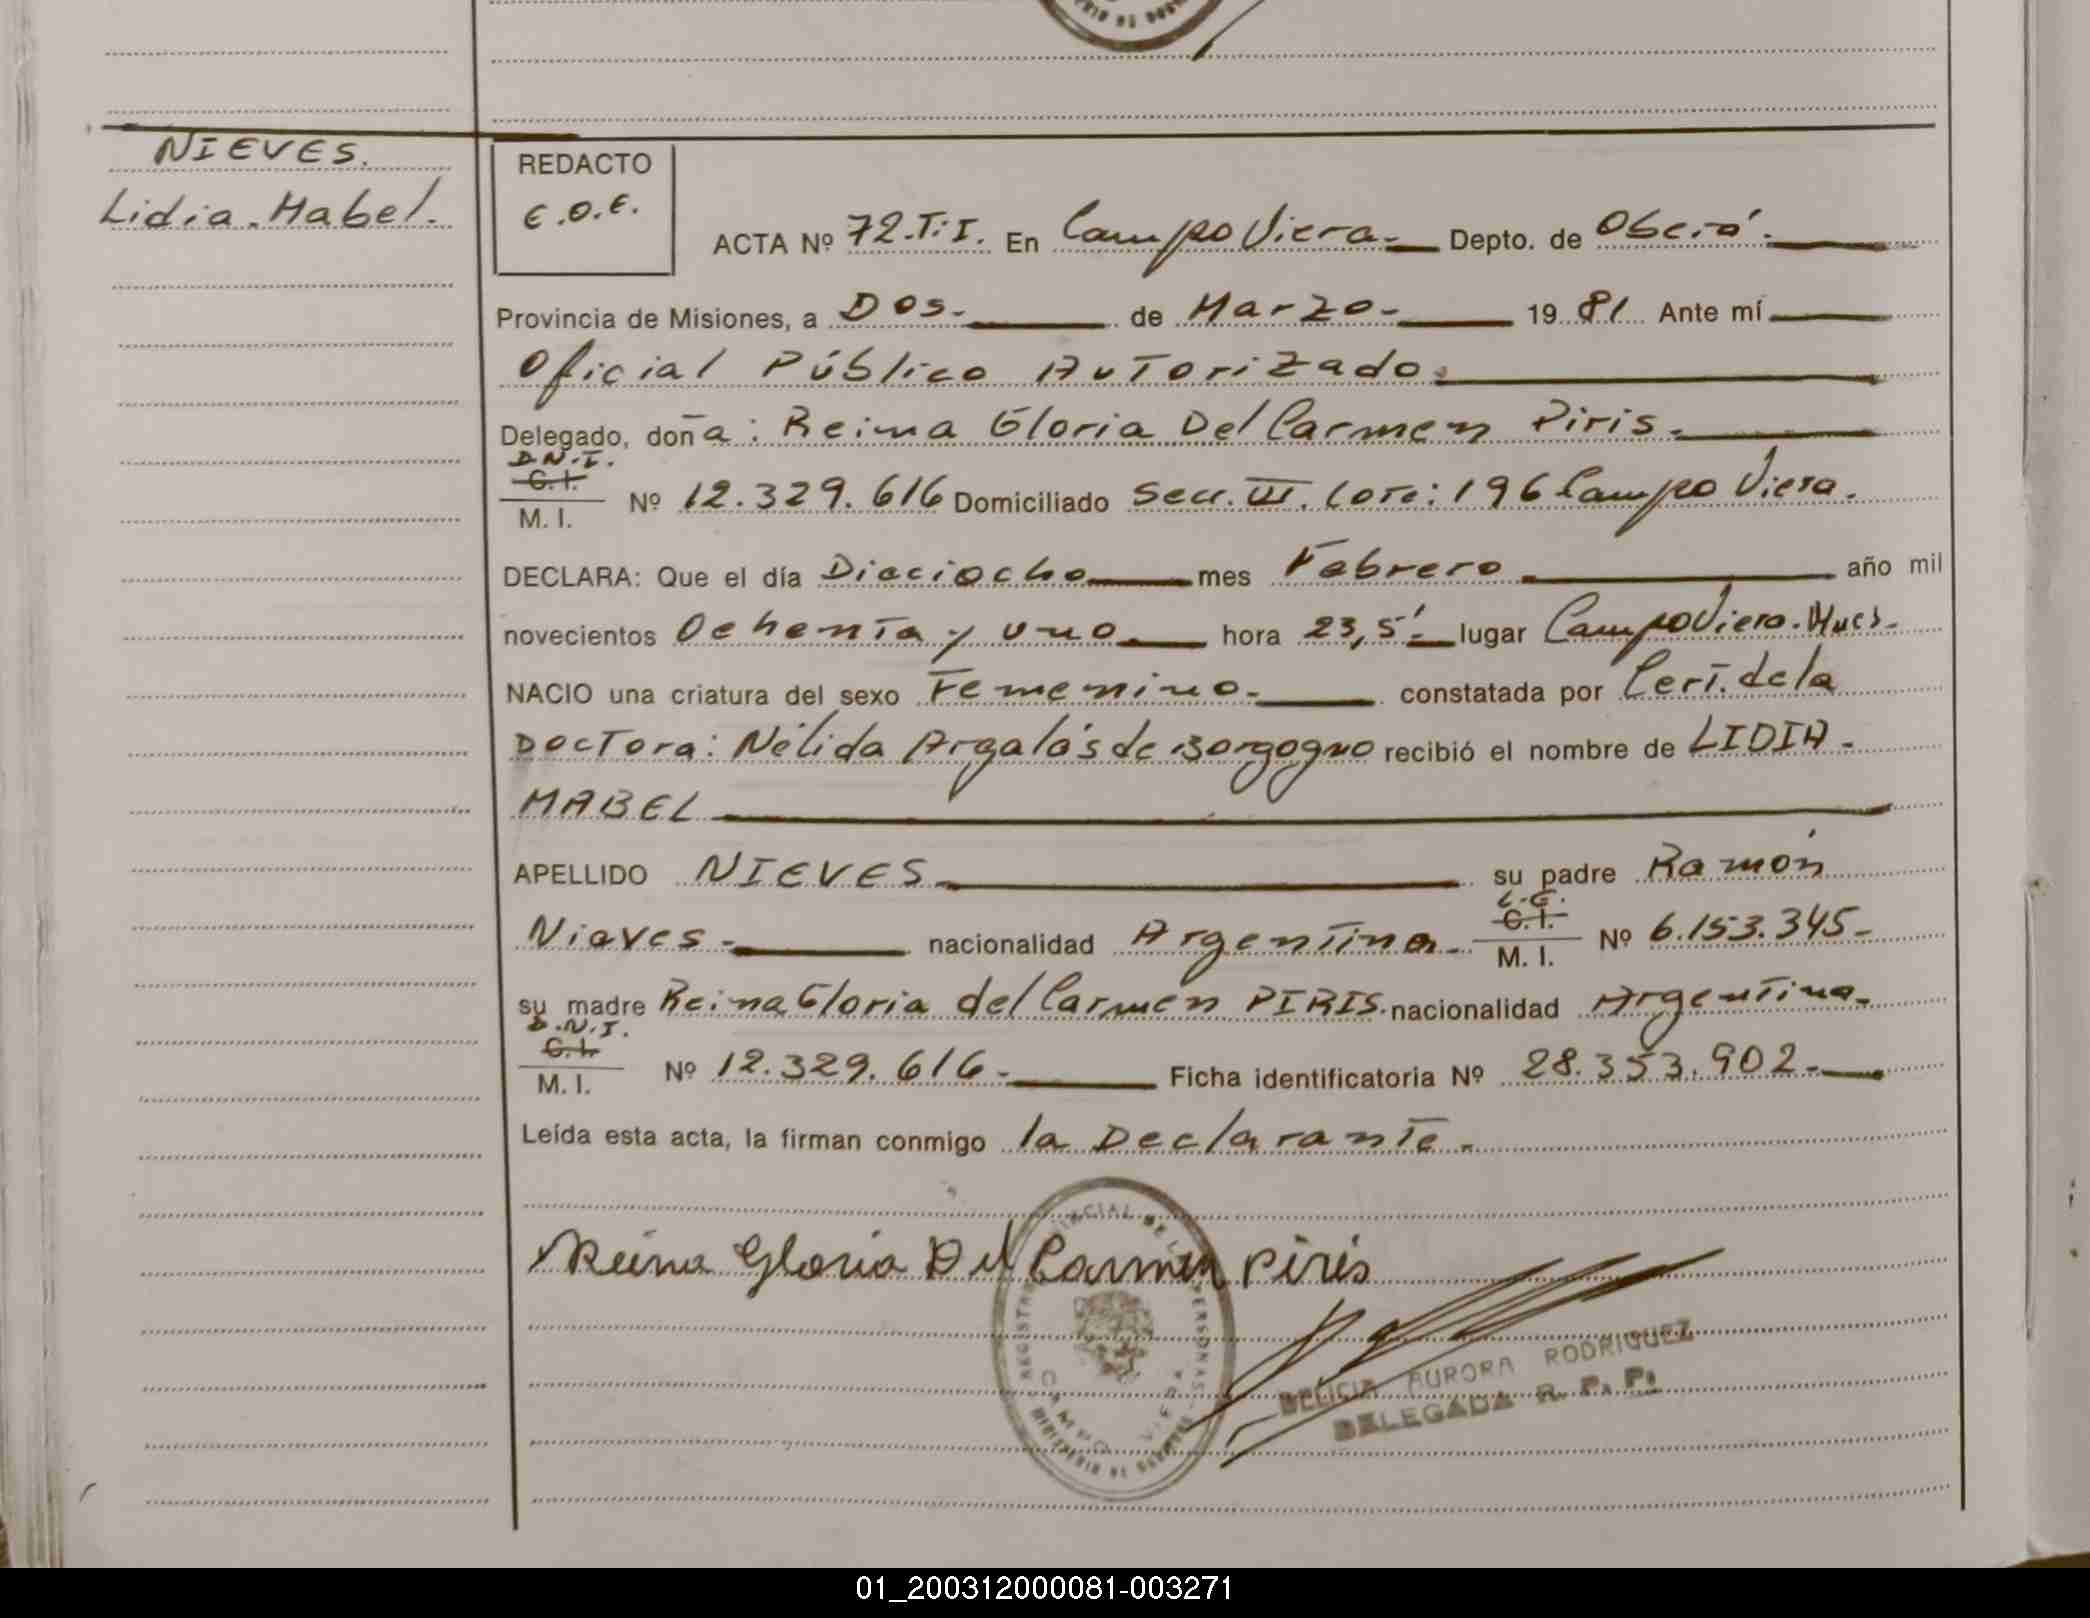 NIEVES.
Lidia. Mabel.
REDACTO
E.O.E.
ACTA Nº 72.T:I. En Campo Viera.- Depto. de Oberá.
Provincia de Misiones, a Dos.- de Marzo.- 1981 Ante mí
Oficial Público Autorizado.
Delegado, doña: Reina Gloria Del Carmen Piris.-
D.N.I.
C.I.
M. I. Nº 12.329.616 Domiciliado Secc. III. Lote: 196 Campo Viera.
DECLARA: Que el día Dieciocho mes Febrero año mil
novecientos Ochenta y uno.- hora 23,5'.- lugar Campo Viera.
NACIO una criatura del sexo Femenino.- constatada por Cert. de la
Doctora: Nélida Argalás de Borgogno recibió el nombre de LIDIA-
MABEL
APELLIDO NIEVES.- su padre Ramón
Nieves.- nacionalidad Argentina.- L.E.
C.I.
M. I. Nº 6.153.345.-
su madre Reina Gloria del Carmen PIRIS. nacionalidad Argentina.-
D.N.I.
C.I.
M. I. Nº 12.329.616.- Ficha identificatoria Nº 28.353.902.-
Leída esta acta, la firman conmigo la Declarante.-
Reina Gloria Del Carmen Piris
DELICIA AURORA RODRIGUEZ
DELEGADA R. P. P.
01_200312000081-003271